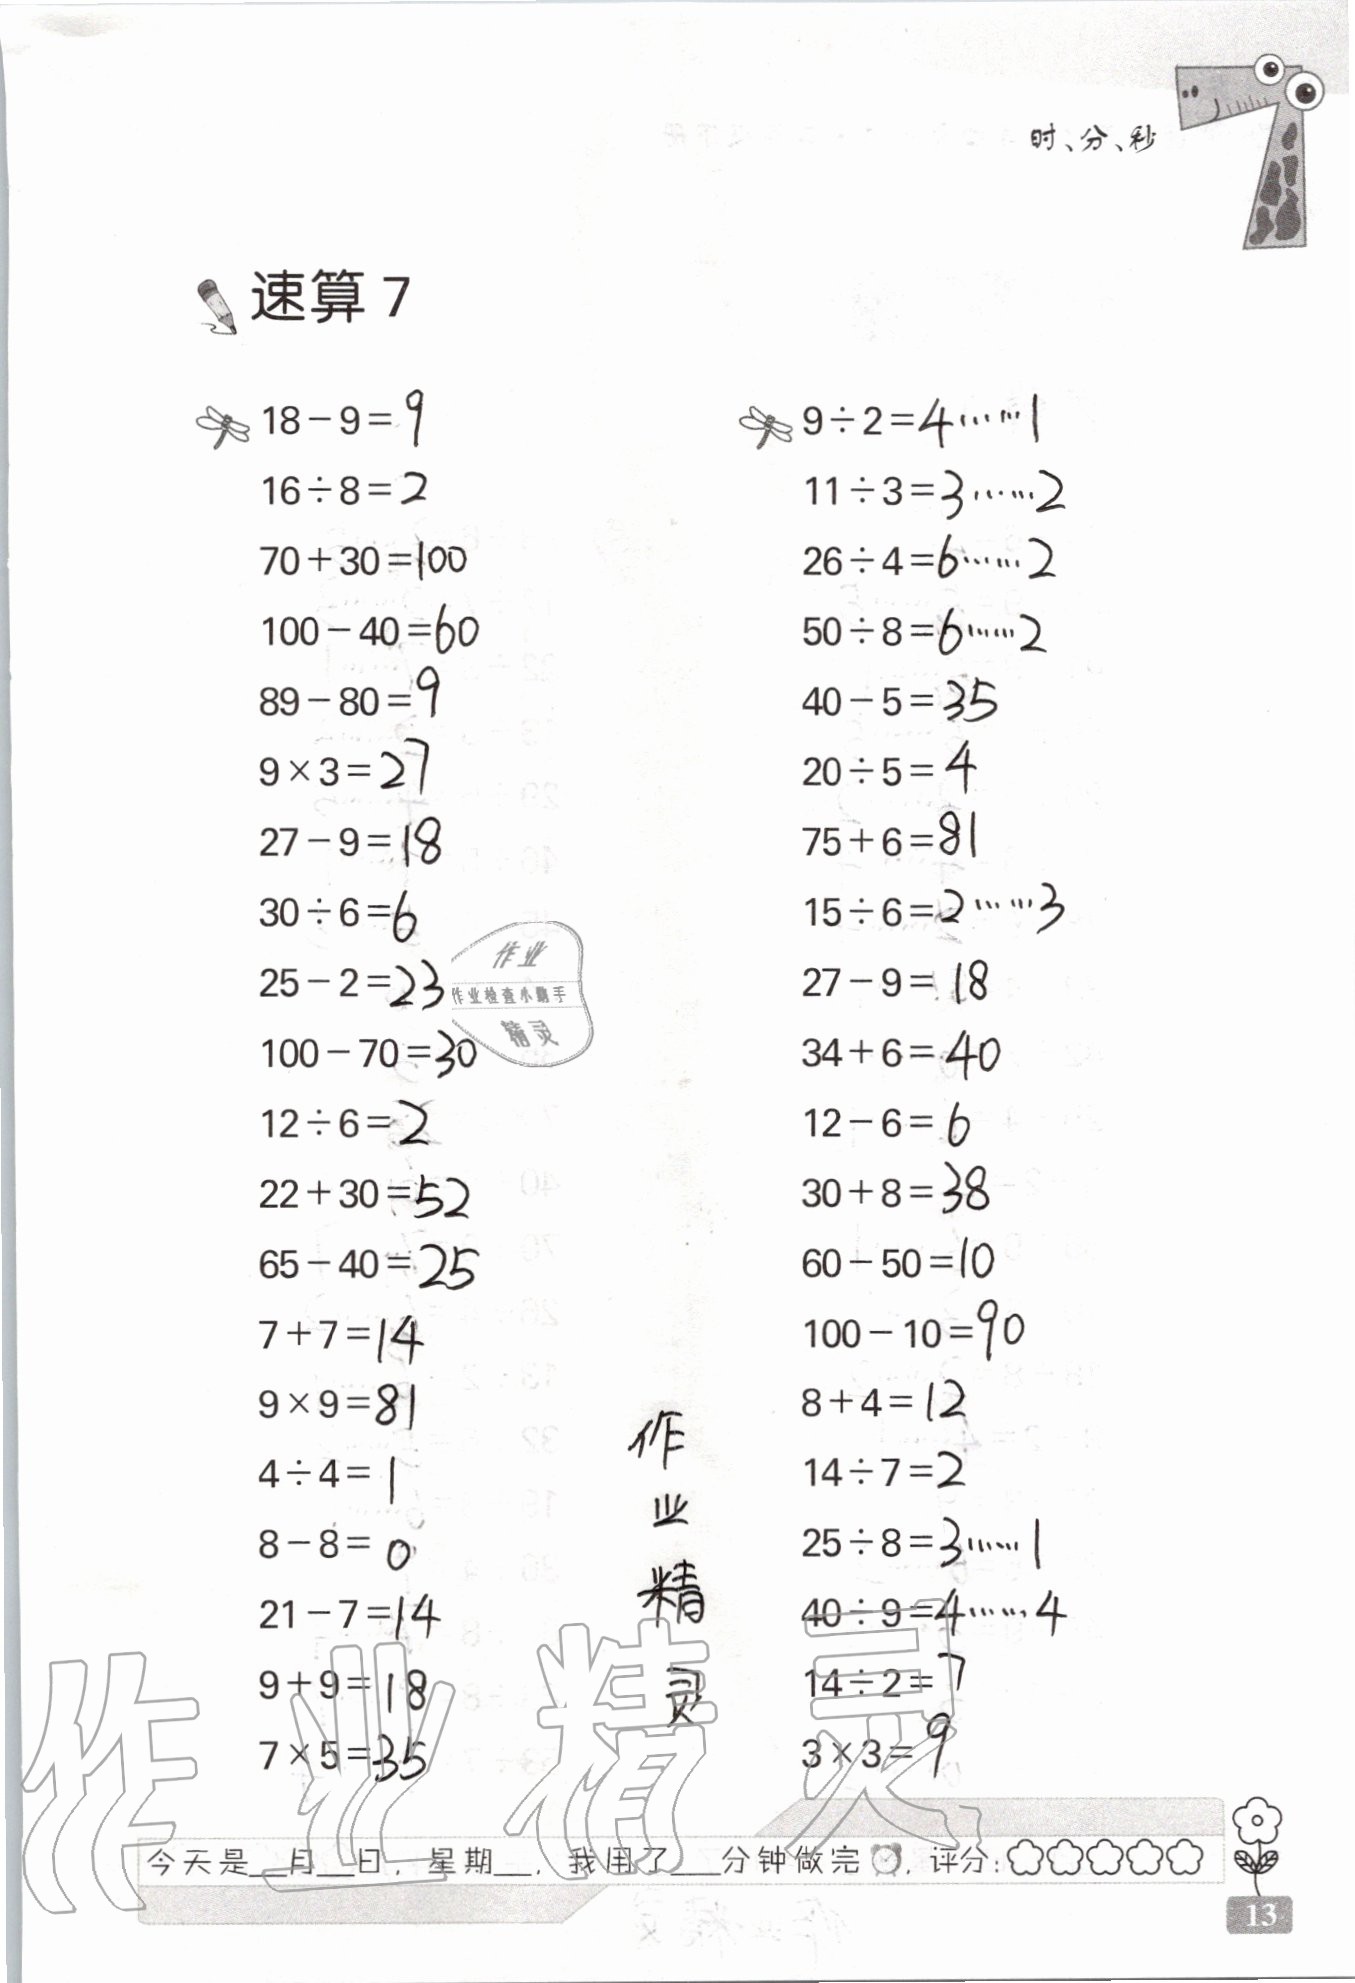 时、分、秒
速算 7
18－9＝9
16÷8＝2
70＋30＝100
100－40＝60
89－80＝9
9×3＝27
27－9＝18
30÷6＝6
25－2＝23
100－70＝30
12÷6＝2
22＋30＝52
65－40＝25
7＋7＝14
9×9＝81
4÷4＝1
8－8＝0
21－7＝14
9＋9＝18
7×5＝35
9÷2＝4……1
11÷3＝3……2
26÷4＝6……2
50÷8＝6……2
40－5＝35
20÷5＝4
75＋6＝81
15÷6＝2……3
27－9＝18
34＋6＝40
12－6＝6
30＋8＝38
60－50＝10
100－10＝90
8＋4＝12
14÷7＝2
25÷8＝3……1
40÷9＝4……4
14÷2＝7
3×3＝9
作业
作业检查小助手
精灵
作业精灵
作业精灵
今天是__月__日，星期__，我用了__分钟做完，评分：
13